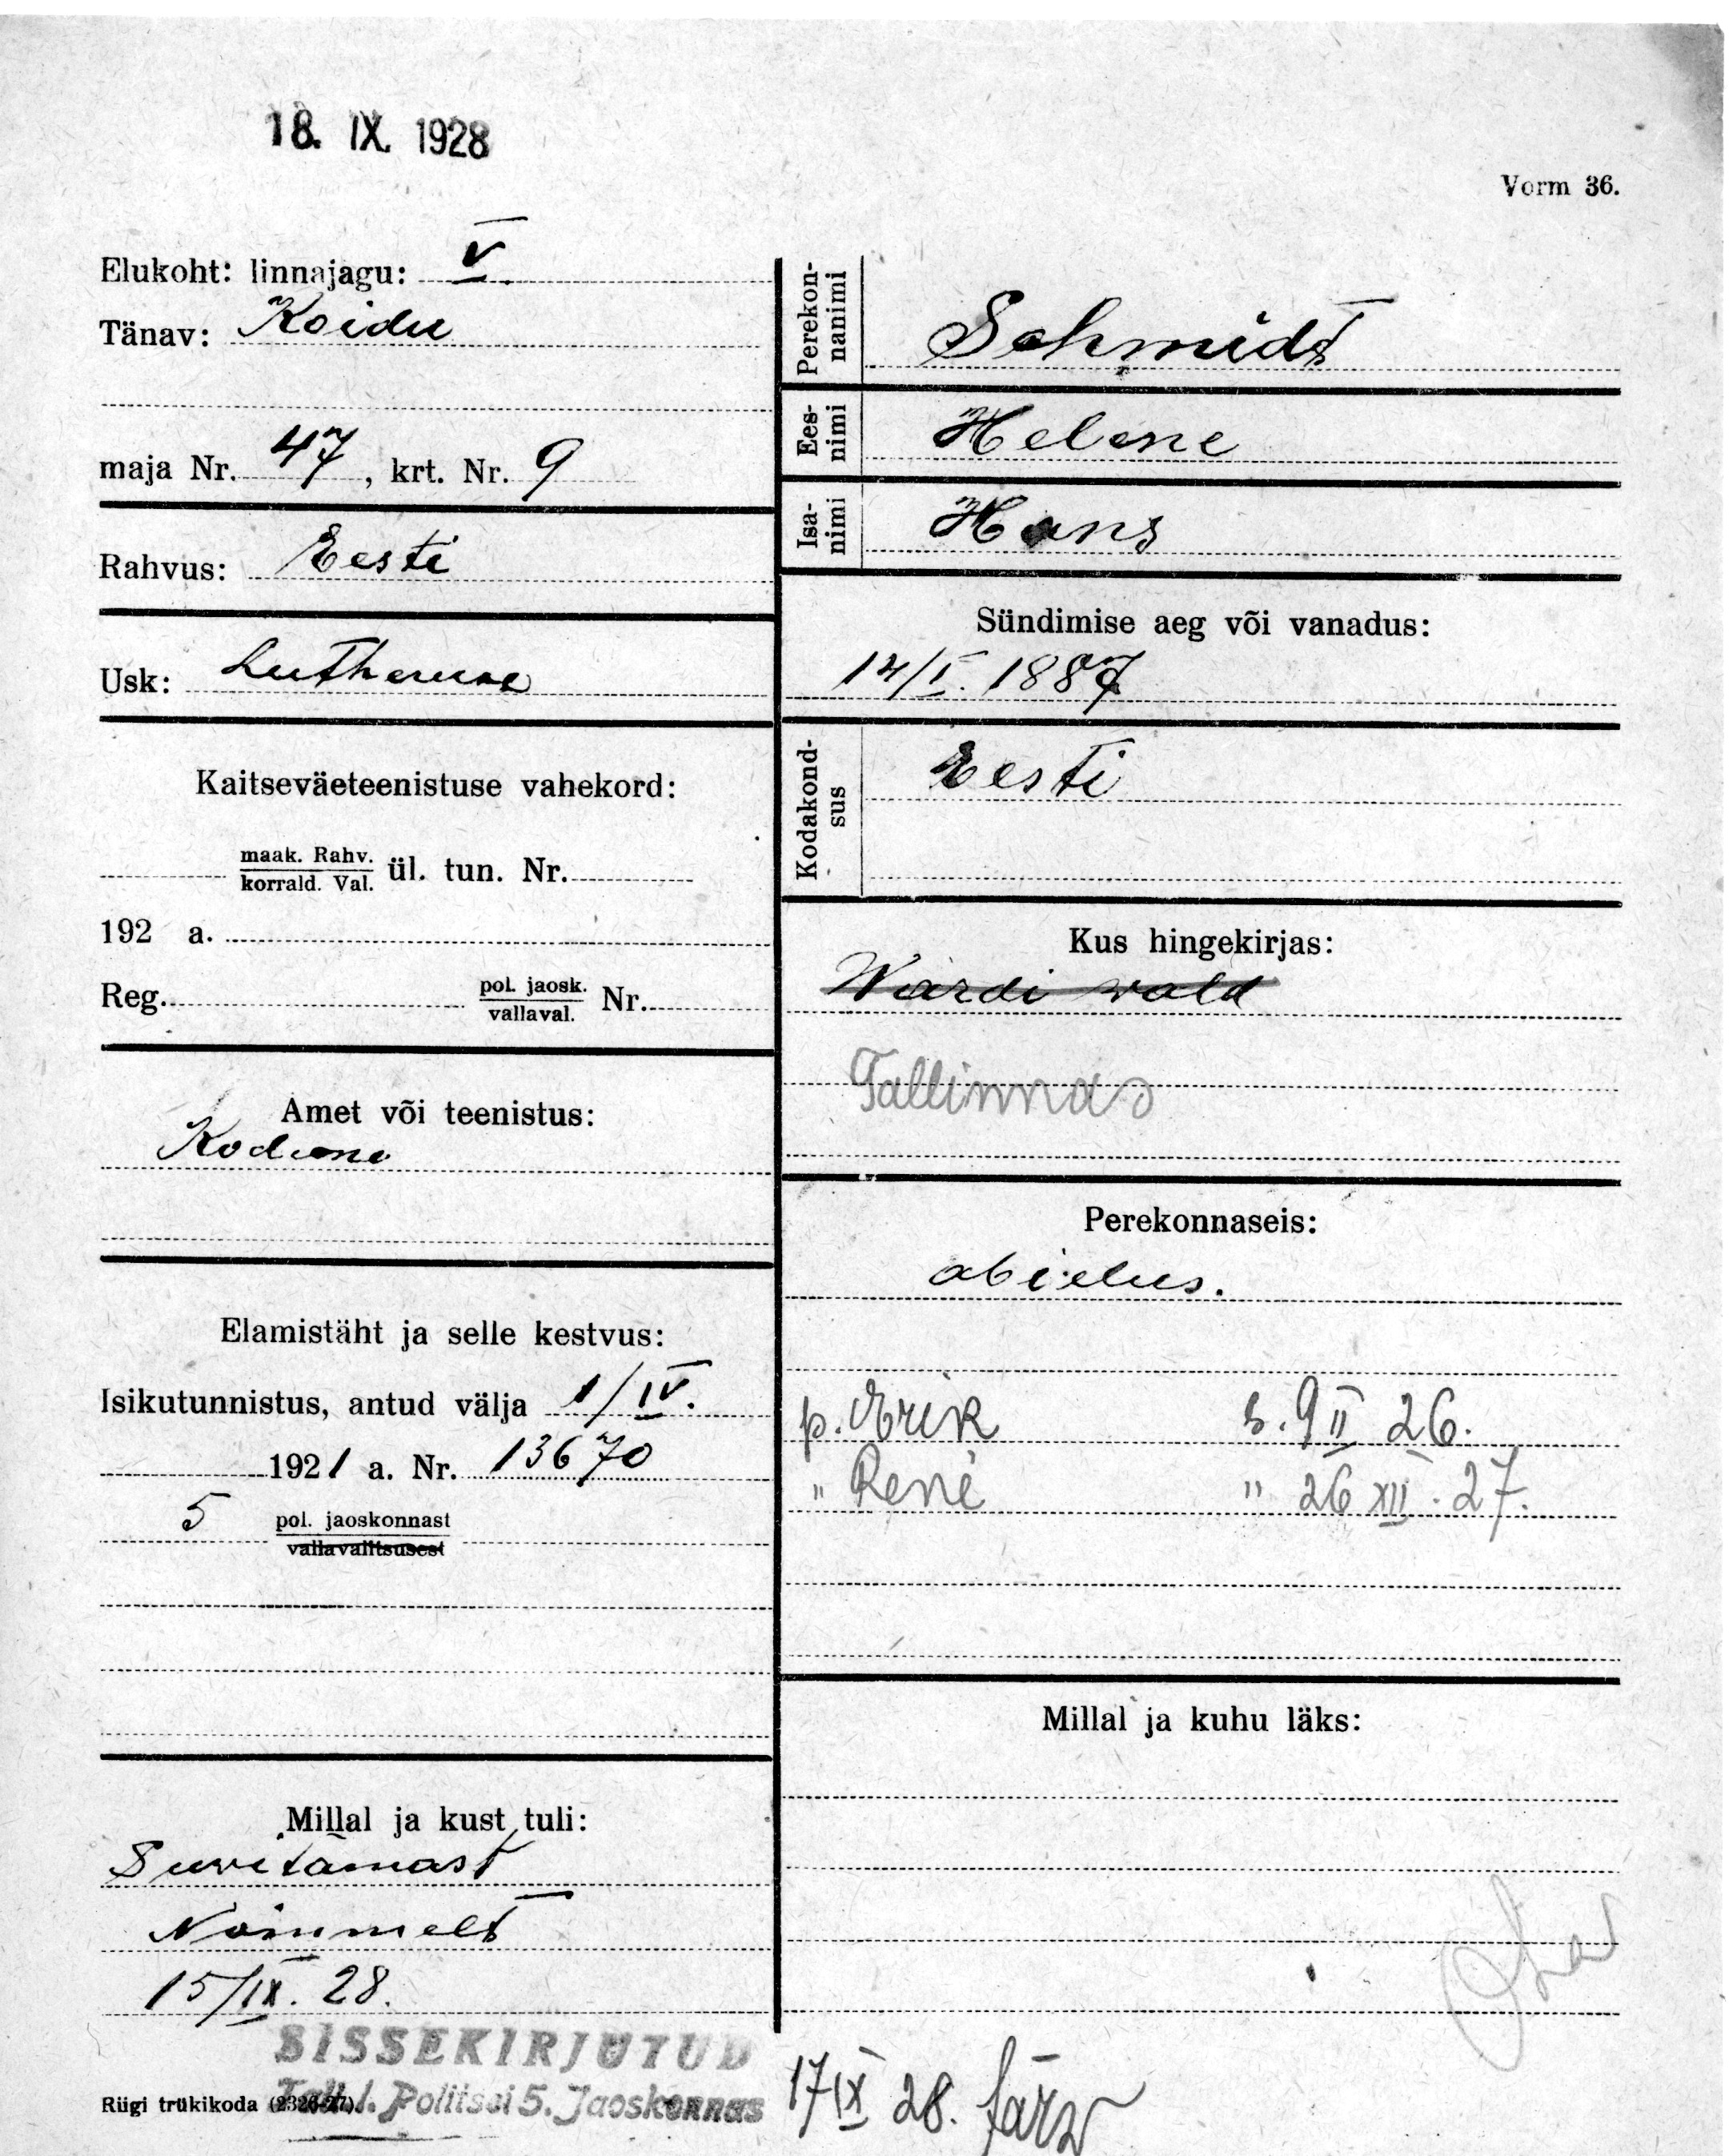 18. IX. 1928
Vorm 36.
Elukoht: linnajagu: V.
Tänav: Koidu
maja Nr. 47, krt. Nr. 9
Rahvus: Eesti
Usk: Lutheruse
Kaitseväeteenistuse vahekord:
maak. Rahv.
korrald. Val. ül. tun. Nr.
192 a.
Reg. pol. jaosk.
vallaval. Nr.
Amet või teenistus:
Kodune
Elamistäht ja selle kestvus:
Isikutunnistus, antud välja 1/IV.
1921 a. Nr. 13670
5 pol. jaoskonnast
vallavalitsusest
Millal ja kust tuli:
Suwitamast
Nõmmelt
15/IX. 28.
SISSEKIRJUTUD
Riigi trükikoda (2326-27).
Tall. l. Politsei 5. Jaoskonnas
Perekonnanimi
Schmidt
Eesnimi
Helene
Isanimi
Hans
Sündimise aeg või vanadus:
14/I. 1887
Kodakondsus
Eesti
Kus hingekirjas:
wald
Tallinnas
Perekonnaseis:
abielus.
p. Erik s. 9 II 26.
" René " 26 XII. 27.
Millal ja kuhu läks:
17 IX 28.